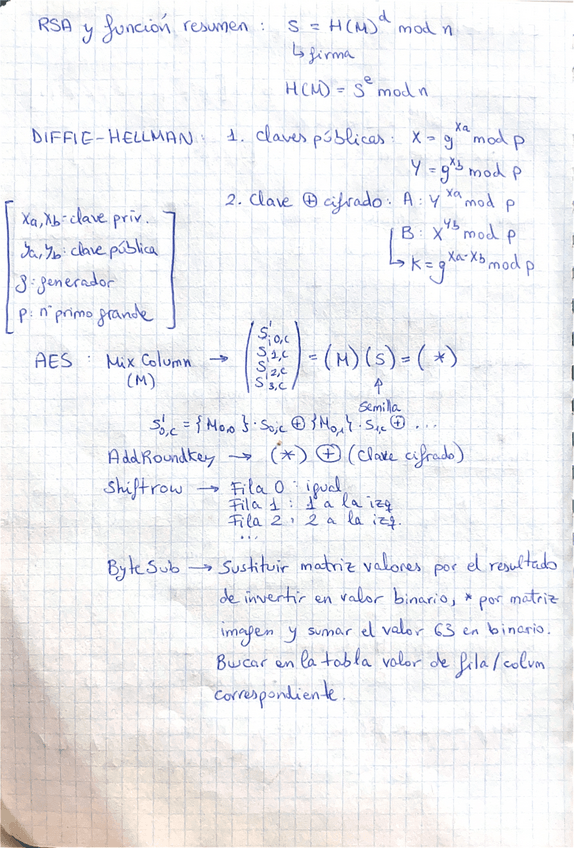 RSA y función resumen : S = H(M)^d mod n
↳ firma
H(M) = S^e mod n
DIFFIE-HELLMAN : 1. Claves públicas : X = g^xa mod p
Y = g^xb mod p
2. Clave ⊕ cifrado : A : Y^xa mod p
B : X^yb mod p
↳ K = g^xa·xb mod p
xa, xb - clave priv.
ya, yb : clave pública
g : generador
p : nº primo grande
AES : Mix Column → (S'0,c S'1,c S'2,c S'3,c) = (M) (S) = (*)
(M)
↑
semilla
S'0,c = {M0,0} · S0,c ⊕ {M0,1} · S1,c ⊕ ...
AddRoundKey → (*) ⊕ (clave cifrado)
Shiftrow → Fila 0 : igual
Fila 1 : 1 a la izq
Fila 2 : 2 a la izq.
...
ByteSub → Sustituir matriz valores por el resultado
de invertir en valor binario, * por matriz
imagen y sumar el valor 63 en binario.
Buscar en la tabla valor de fila/colum
correspondiente.